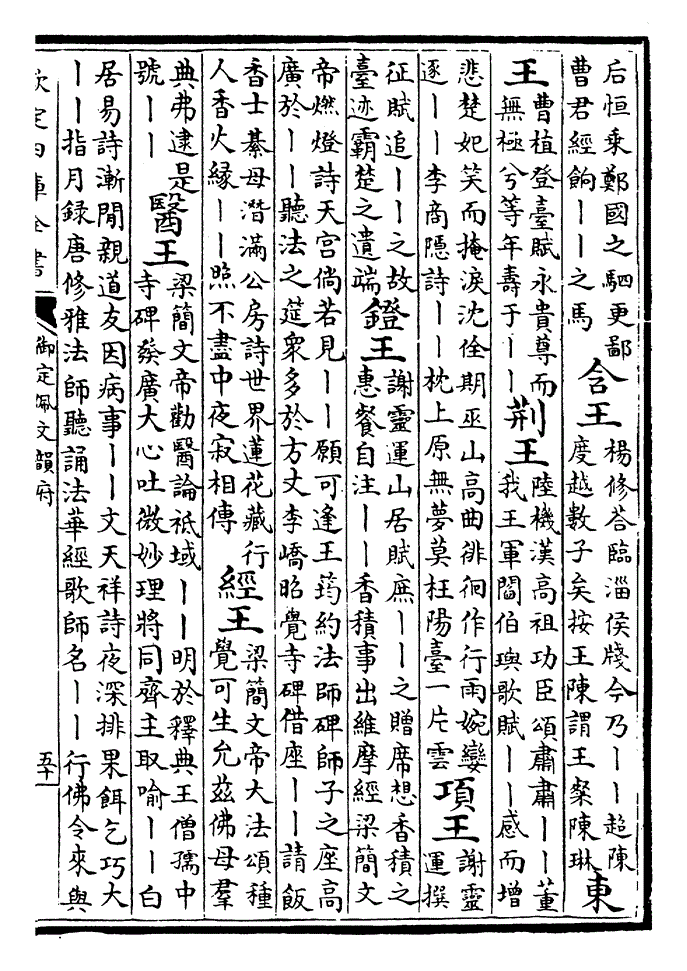 后恒乘鄭國之駟更鄙
曹君經餉丨丨之馬
含王
楊修荅臨淄侯牋今乃丨丨超陳
度越數子矣按王陳謂王粲陳琳
東
王
曹植登臺賦永貴尊而
無極兮等年壽于丨丨
荆王
陸機漢高祖功臣頌肅肅丨丨董
我王軍閻伯璵歌賦丨丨感而增
悲楚妃笑而掩淚沈佺期巫山高曲徘徊作行雨婉孌
逐丨丨李商隱詩丨丨枕上原無夢莫枉陽臺一片雲
項王
謝靈
運撰
征賦追丨丨之故
臺迹霸楚之遺端
鐙王
謝靈運山居賦庶丨丨之贈席想香積之
惠餐自注丨丨香積事出維摩經梁簡文
帝燃燈詩天宮倘若見丨丨願可逢王筠約法師碑師子之座高
廣於丨丨聽法之筵衆多於方丈李嶠昭覺寺碑借座丨丨請飯
香士綦毋潛滿公房詩世界蓮花藏行
人香火縁丨丨照不盡中夜寂相傳
經王
梁簡文帝大法頌種
覺可生允兹佛母羣
典弗逮是
號丨丨
醫王
梁簡文帝勸醫論祗域丨丨明於釋典王僧孺中
寺碑發廣大心吐微妙理將同齊主取喻丨丨白
居易詩漸閒親道友因病事丨丨文天祥詩夜深排果餌乞巧大
丨丨指月録唐修雅法師聽誦法華經歌師名丨丨行佛令來與
欽定四庫全書
御定佩文韻府
五十